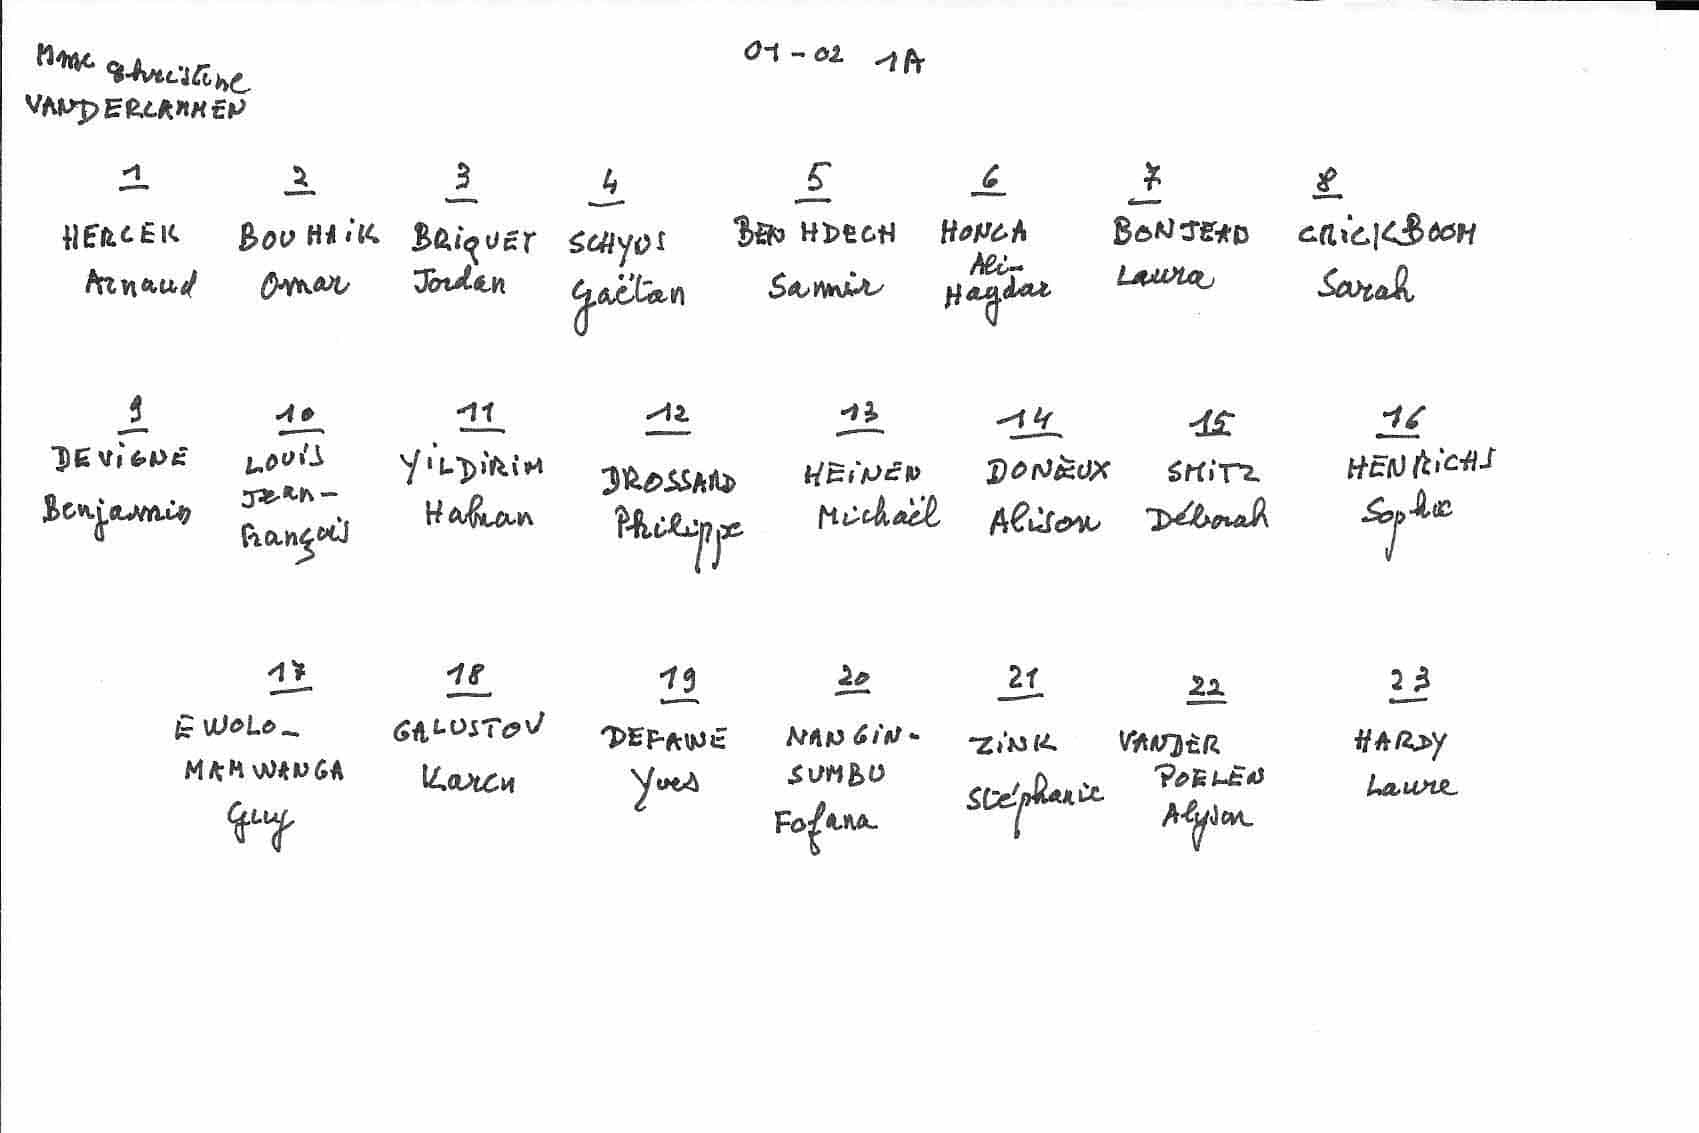 Mme Christine
VANDERLAMMEN
01-02 1A
1
HERCEK
Arnaud
2
BOUHAIK
Omar
3
BRIQUET
Jordan
4
SCHYUS
Gaëtan
5
BEN HDECH
Samir
6
HONCA
Ali-
Haydar
7
BONJEAD
Laura
8
CRICKBOOM
Sarah
9
DEVIGNE
Benjamin
10
LOUIS
JEAN-
François
11
YILDIRIM
Hakan
12
DROSSARD
Philippe
13
HEINEN
Michaël
14
DONEUX
Alison
15
SMITZ
Déborah
16
HENRICHS
Sophie
17
EWOLO-
MAMWANGA
Guy
18
GALUSTOV
Karen
19
DEFAWE
Yves
20
NANGIN-
SUMBU
Fofana
21
ZINK
Stéphanie
22
VANDER
POELEN
Alyson
23
HARDY
Laure